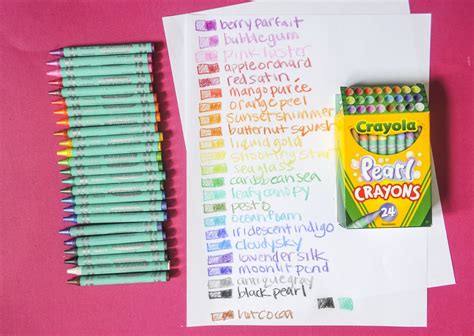 berry parfait
bubblegum
pink luster
apple orchard
red satin
mango purée
orange peel
sunset shimmer
butternut squash
liquid gold
shooting star
sea glass
caribbean sea
leafy canopy
pesto
ocean foam
iridescent indigo
cloudy sky
lavender silk
moonlit pond
antique gray
black pearl
hot cocoa
Crayola
Pearl
CRAYONS
24